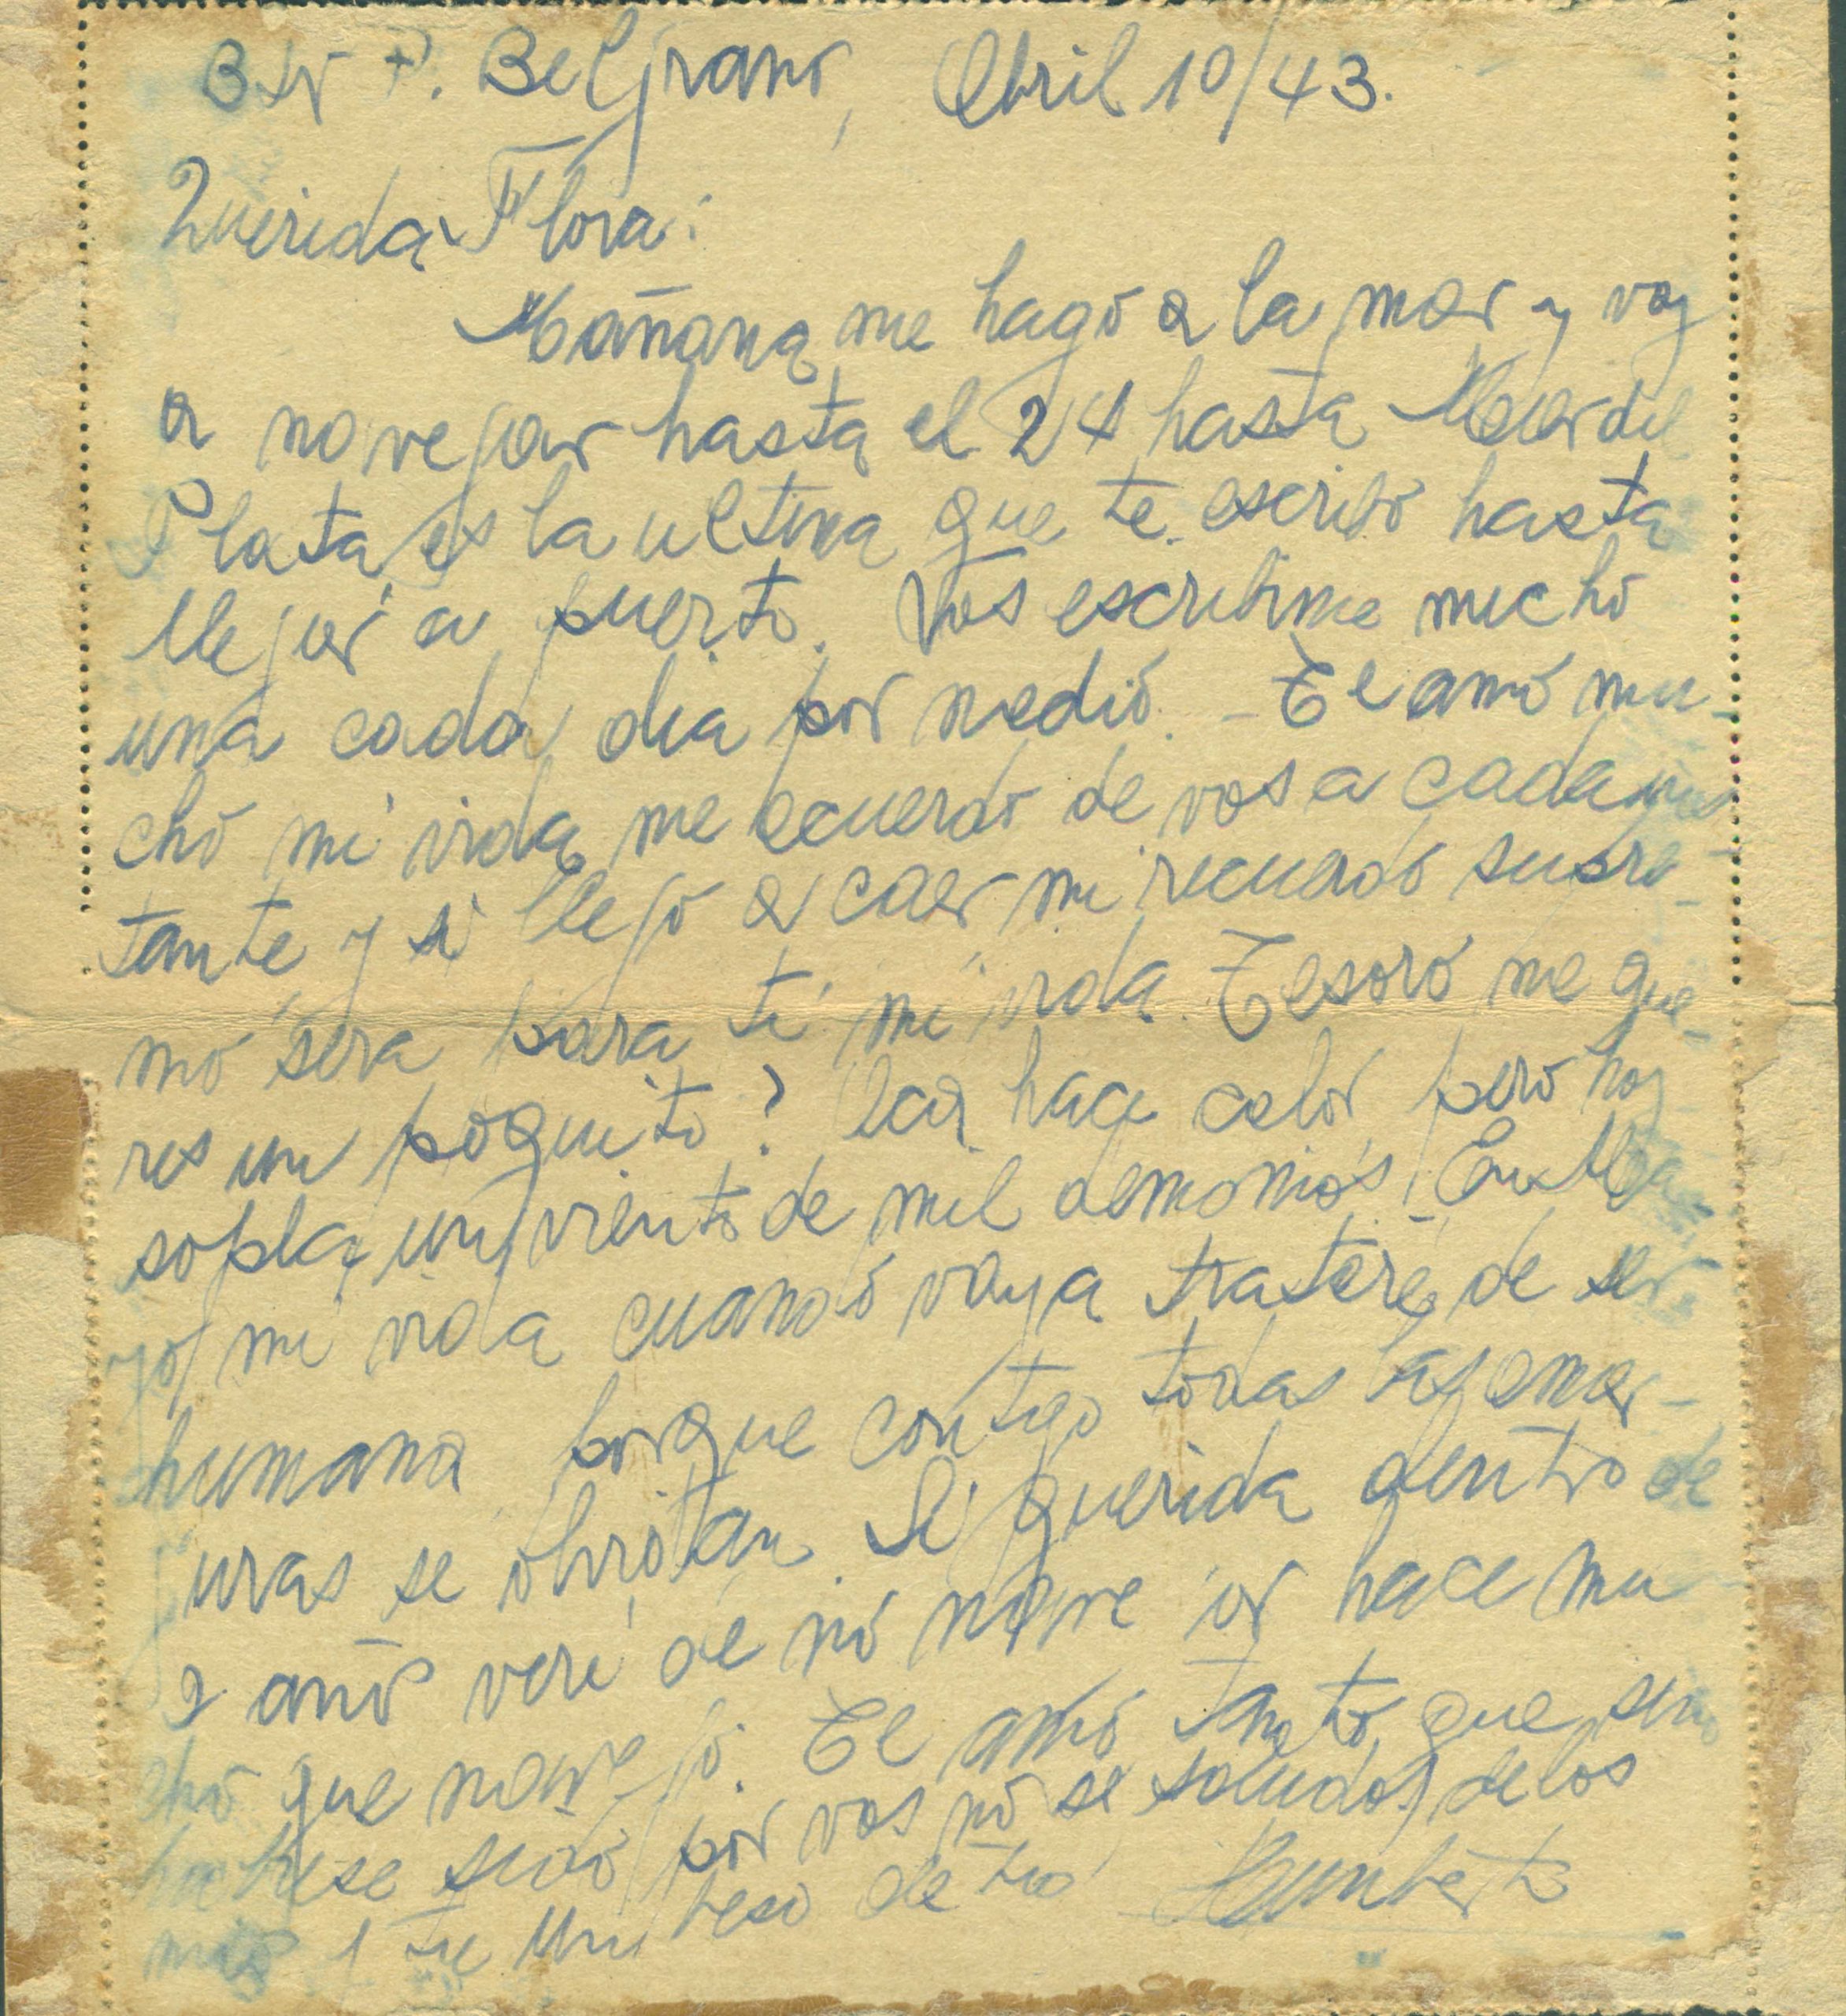 P. Belgrano, Abril 10/43.
Querida Flora:
Mañana me hago a la mar y voy
a navegar hasta el 24 hasta Mar del
Plata, es la ultima que te escribo hasta
llegar a puerto. Vos escribime mucho
una cada dia por medio. - Te amo mu-
cho mi vida me acuerdo de vos a cada ins
tante y si llego a caer mi recuerdo supre-
mo sera para ti mi vida. Tesoro me que-
res un poquito? Aca hace calor, pero hoy
sopla un viento de mil demonios. En Ma
yo mi vida cuando vaya trataré de ser
humano porque contigo todas las amar-
uras se olvidan. Si querida dentro de
2 años veré de no navegar hace mu
cho que navego. Te amo tanto que si no
hubiese sido por vos no se saludos de los
mios y tu un beso de tu Humberto